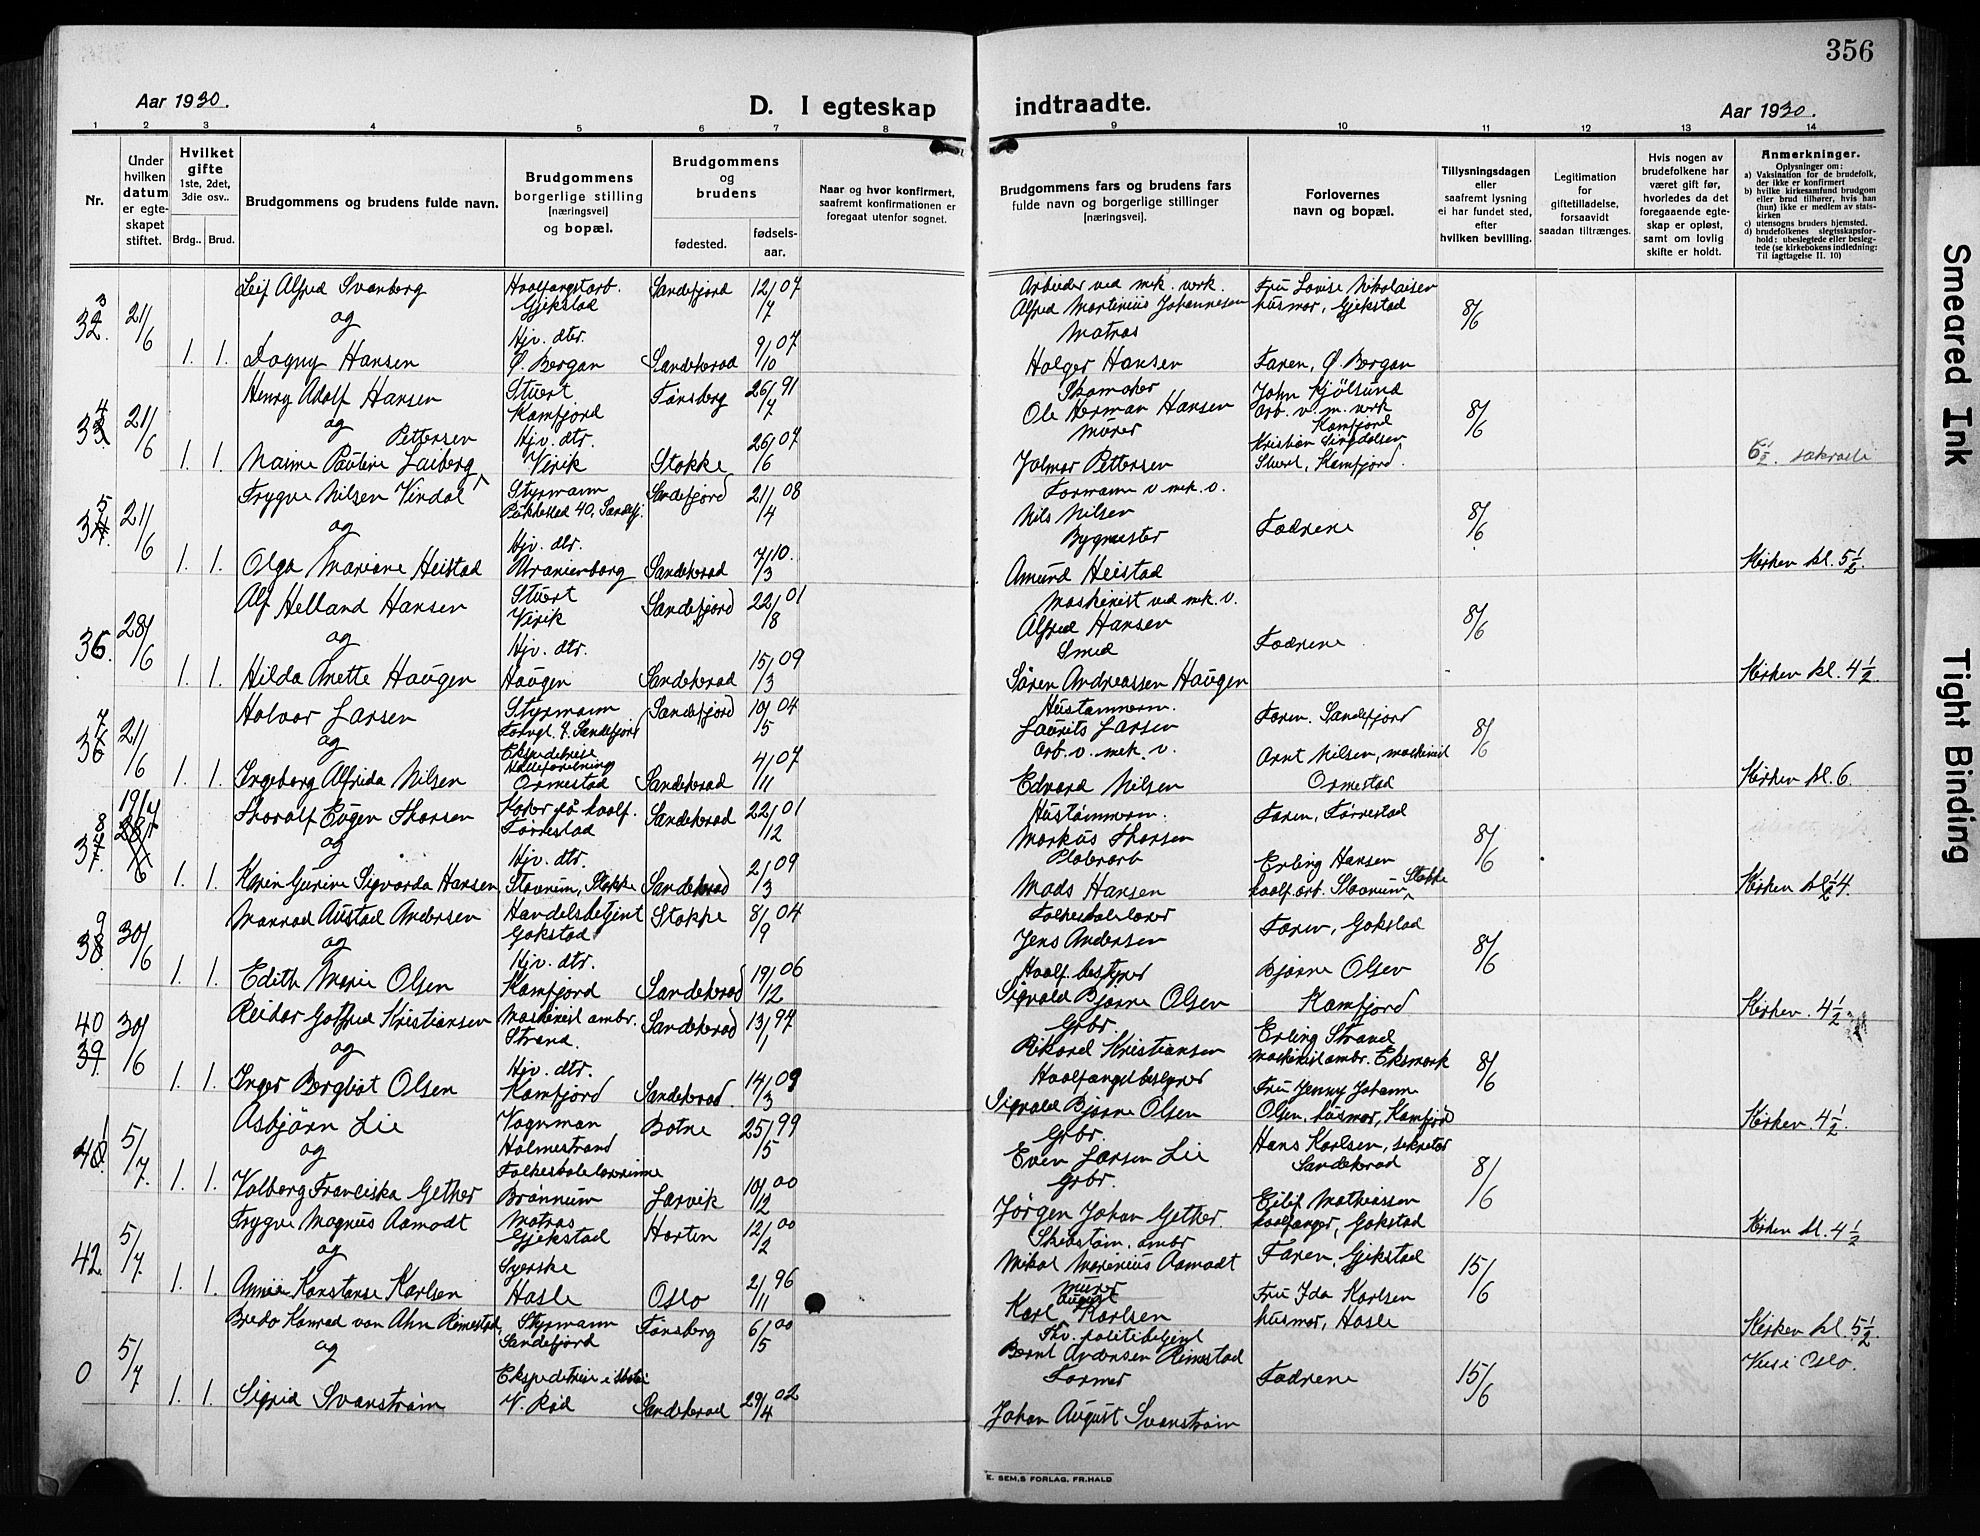 356
Aar 1930.
D. I egteskap indtraadte.
Aar 1930.
1 2 3 4 5 6 7 8 9 10 11 12 13 14
Nr.
Under hvilken datum er egteskapet stiftet.
Hvilket gifte 1ste, 2det, 3die osv..
Brdg.. Brud.
Brudgommens og brudens fulde navn.
Brudgommens borgerlige stilling [næringsvei] og bopæl.
Brudgommens og brudens
fødested.
fødsels-aar.
Naar og hvor konfirmert, saafremt konfirmationen er foregaat utenfor sognet.
Brudgommens fars og brudens fars fulde navn og borgerlige stillinger [næringsvei].
Forlovernes navn og bopæl.
Tillysningsdagen eller saafremt lysning ei har fundet sted, efter hvilken bevilling.
Legitimation for giftetilladelse, forsaavidt saadan tiltrænges.
Hvis nogen av brudefolkene har været gift før, hvorledes da det foregaaende egteskap er opløst, samt om lovlig skifte er holdt.
Anmerkninger.
Oplysninger om:
a) Vaksination for de brudefolk, der ikke er konfirmert
b) hvilke kirkesamfund brudgom eller brud tilhører, hvis han (hun) ikke er medlem av statskirken
c) utensogns bruders hjemsted.
d) brudefolkenes slegtsskapsforhold: ubeslegtede eller beslegtede (se kirkebokens indledning: Til Iagttagelse II. 10)
21/6 Leif Alfred Svanberg Hvalfangstarb. Gjekstad Sandefjord 12/7 07
og
1. 1. Dagny Hansen Hjv. dtr. Ø. Bergan Sandeherad 9/10 07
Arbeider ved mek. verk. Alfred Martinius Johannesen
Matros Holger Hansen
Fru Lovise Nikolaisen husmor, Gjekstad
Faren, Ø. Bergan
8/6
21/6 Henry Adolf Hansen Stuert Kamfjord Tønsberg 26/7 91
og
Pettersen
1. 1. Pauline Hjv. dtr. Virik Stokke 26/6 07
Ole Herman Hansen
Murer Jalmar Pettersen
John Kjølsund arb. v. m. verk Kamfjord
Kristian Stuert, Kamfjord.
8/6
21/6 Trygve Nilsen Vindal Styrmann 40, Sandefj. Sandefjord 21/4 08
og
1. 1. Olga Mariane Heistad Hjv. dtr. Uranienborg Sandeherad 7/3 10.
Formann v mek. v. Nils Nilsen
Bygmester Amund Heistad
Fædrene
8/6
Kirken kl. 5½.
36. 28/6 Alf Helland Hansen Stuert Virik Sandefjord 22/8 01
og
1. 1. Hilda Anette Haugen Hjv. dtr. Haugen Sandeherad 15/3 09
Maskinist ved mek. v. Alfred Hansen
Smed Søren Andreassen Haugen
Fædrene
8/6
Kirken kl. 4½.
21/6 Halvor Larsen Styrmann Sandefjord 10/5 04
og
1. 1. Ingeborg Alfrida Nilsen Ormestad Sandeherad 4/11 07
Laurits Larsen
arb. v. mek. v. Edvard Nilsen
Faren. Sandefjord
Arnt Nilsen, maskinist Ormestad
8/6
Kirken kl. 6.
Thoralf Eugen Thorsen Koker på hvalf. Sandeherad 22/12 01
og
1. 1. Karin Gurine Sigvarda Hansen Hjv. dtr. Stavnum, Stokke Sandeherad 2/3 09
Hustømmerm. Markus Thorsen
Mads Hansen
Erling Hansen hvalf. arb. Stavnum, Stokke
8/6
Kirken kl ½4.
30/6 Manrad Austad Andersen Handelsbetjent Gokstad Stokke 8/9 04
og
1. 1. Edith Marie Olsen Hjv. dtr. Kamfjord Sandeherad 19/12 06
Folkeskolelærer Jens Andersen
Hvalf. bestyrer Sigvald Bjarne Olsen
Faren, Gokstad
Bjarne Olsen Kamfjord
8/6
Kirken. 4½.
40
39. 30/6 Reidar Gotfred Kristiansen Maskinist ambr. Strand. Sandeherad 13/1 97
og
1. 1. Inger Bergliot Olsen Hjv. dtr. Kamfjord Sandeherad. 14/3 09
Grbr. Rikard Kristiansen
Hvalfangstbestyrer Sigvald Bjarne Olsen
Erling Strand maskinist ambr.
Fru Jenny Johanne Olsen, husmor, Kamfjord
8/6
Kirken. 4½.
5/7. Asbjørn Lie Vognman Holmestrand Botne 25/5 99
og
1. 1. Valborg Franciska Gether Folkeskolelærerinne Brønnum Larvik 10/12 00
Grbr. Even Larsen Lie
Grbr. Jørgen Johan Gether.
Hans Karlsen, sekretær Sandeherad
Eilif Mathiassen hvalfanger, Gokstad
8/6
Kirken kl. 4½
42. 5/7. Trygve Magnus Aamodt Matros Gjekstad Horten 12/2 00
og
1. 1. Annie Konstanse Karlsen Syerske Hasle Oslo 2/11 96
Skibstøm. ambr Mikal Marinius Aamodt
Murer Karl August Karlsen
Faren, Gjekstad
Fru Ida Karlsen husmor, Hasle
15/6
Kirken kl. 5½.
0 5/7 Bredo Konrad von Ahn Rimestad, Styrmann Sandefjord Tønsberg 6/5 00
og
1. 1. Sigrid Svanstrøm Ekspeditrise V. Rød Sandeherad 29/4 02
Fhv. politibetjent Bernt Andersen Rimestad
Former Johan August Svanstrøm
Fædrene
15/6
Viet i Oslo.
E. SEM,S FORLAG, FR.HALD
Smeared Ink
Tight Binding